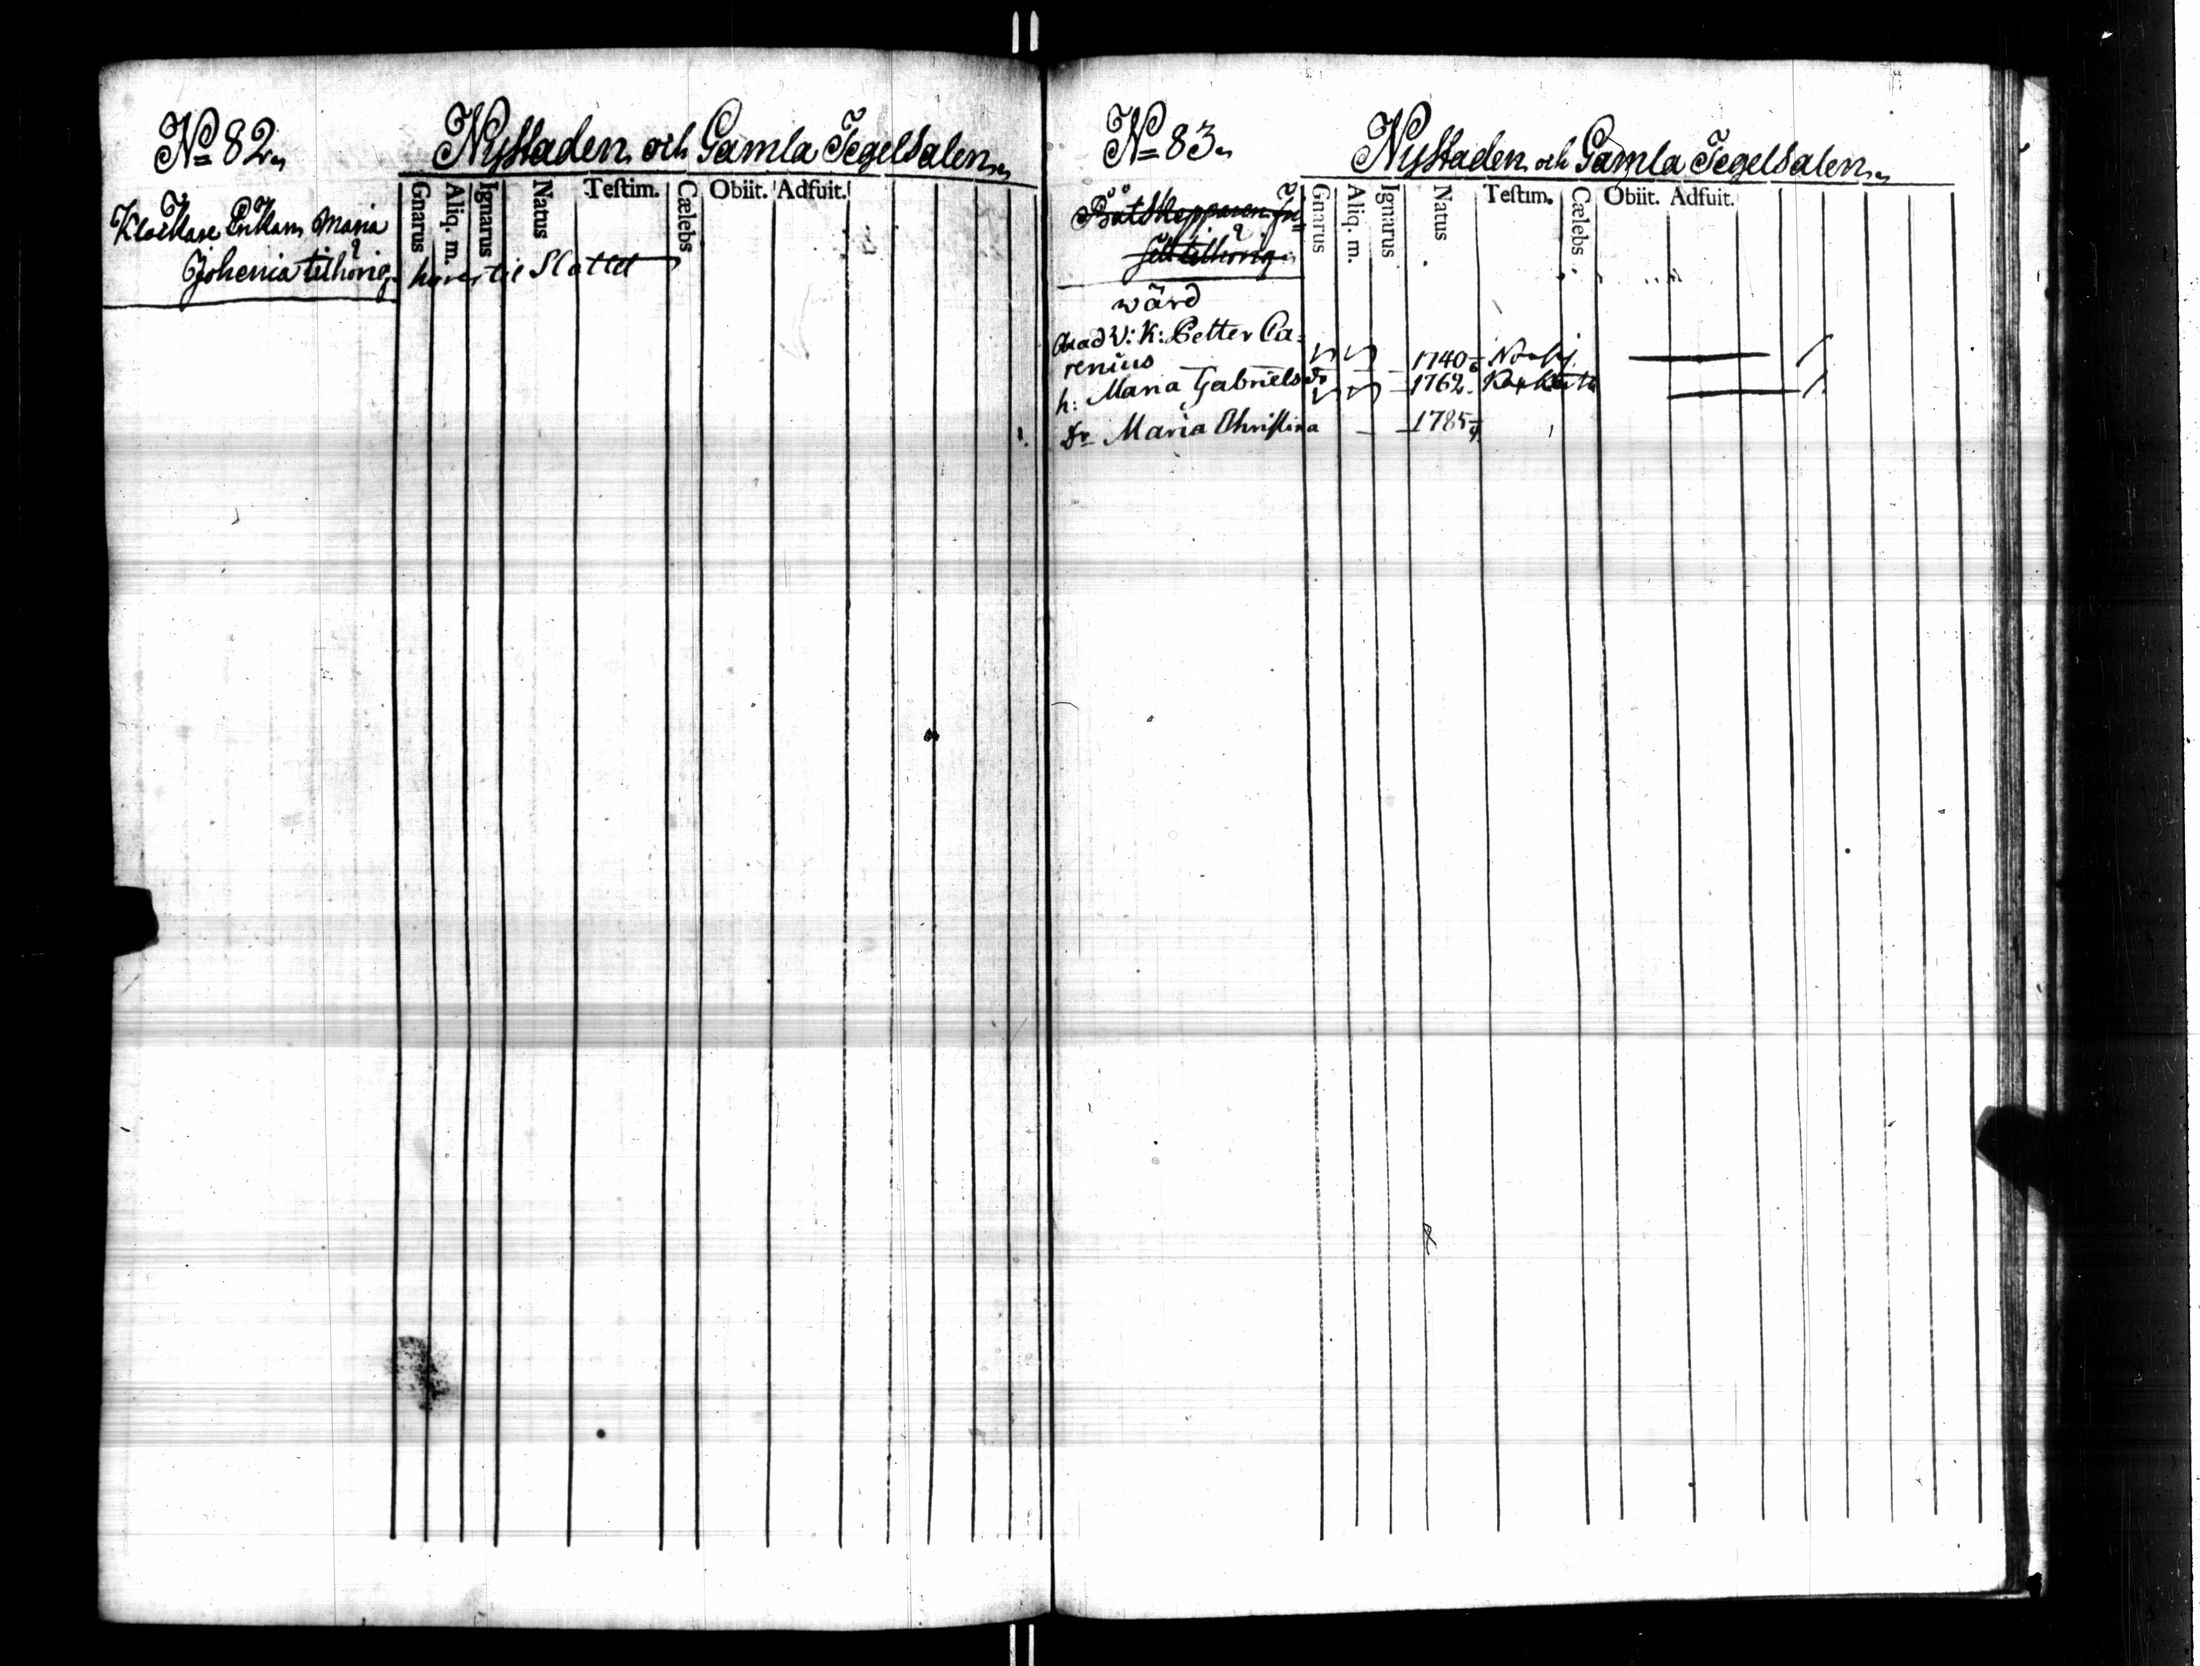 No 82.
Nystaden och Gamla Tegelsalen
Gnarus Aliq. m. Ignarus Natus Testim. Cælebs Obiit. Adfuit.
Klockare Enkan Maria
Johenia tilhörig
hörer til Slottet
No 83.
Nystaden och Gamla Tegelsalen
Gnarus Aliq. m. Ignarus Natus Testim. Cælebs Obiit. Adfuit.
Båtskepparen
tilhörig
wärd
V: K: Petter Ca=
renius 1740
h: Maria Gabrielsdr 1762
Dr Maria Christina 1785